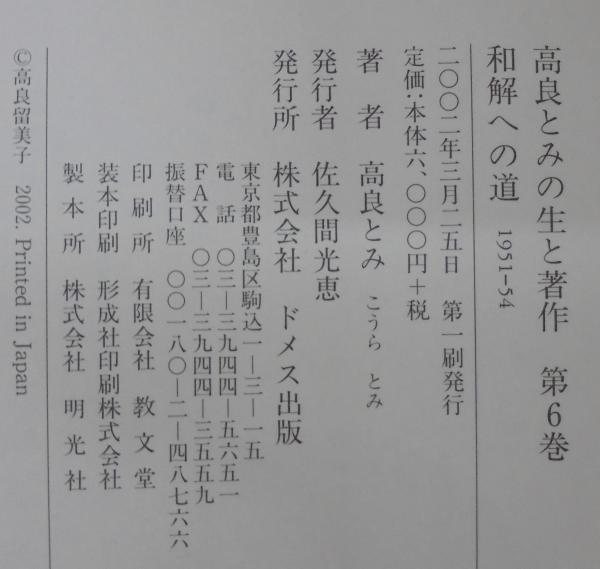 高良とみの生と著作　第6巻
和解への道　1951-54
二〇〇二年三月二五日　第一刷発行
定価:本体六、〇〇〇円+税
著　者　高良とみ　こうら　とみ
発行者　佐久間光恵
発行所　株式会社　ドメス出版
東京都豊島区駒込一―三―一五
電　話　〇三―三九四四―五六五一
FAX　〇三―三九四四―三五五九
振替口座　〇〇一八〇―二―四八七六六
印刷所　有限会社　教文堂
装本印刷　形成社印刷株式会社
製本所　株式会社　明光社
©高良留美子　2002. Printed in Japan